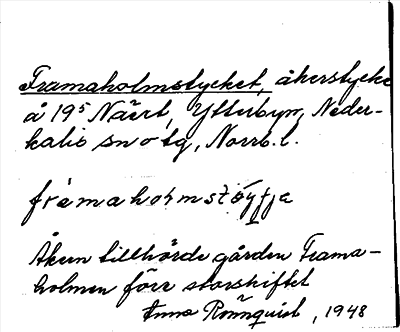 Framaholmstycket, åkerstycke
å 19⁵ Näert, Ytterbyn, Neder-
kalix sn o tg, Norrb. l.
frámahoḷmstö́ytja
Åkern tillhörde gården Frama-
holmen förr storskiftet
Anna Rönnquist, 1948